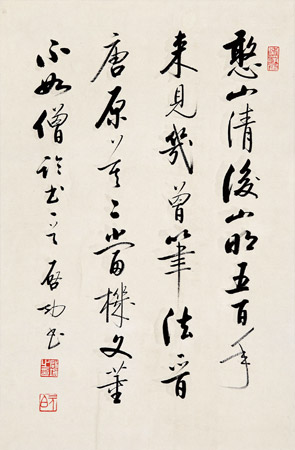 憨山清後山明五百年
来見幾曾筆法晉
唐原莫二當機文董
不如僧 論書 啟功書